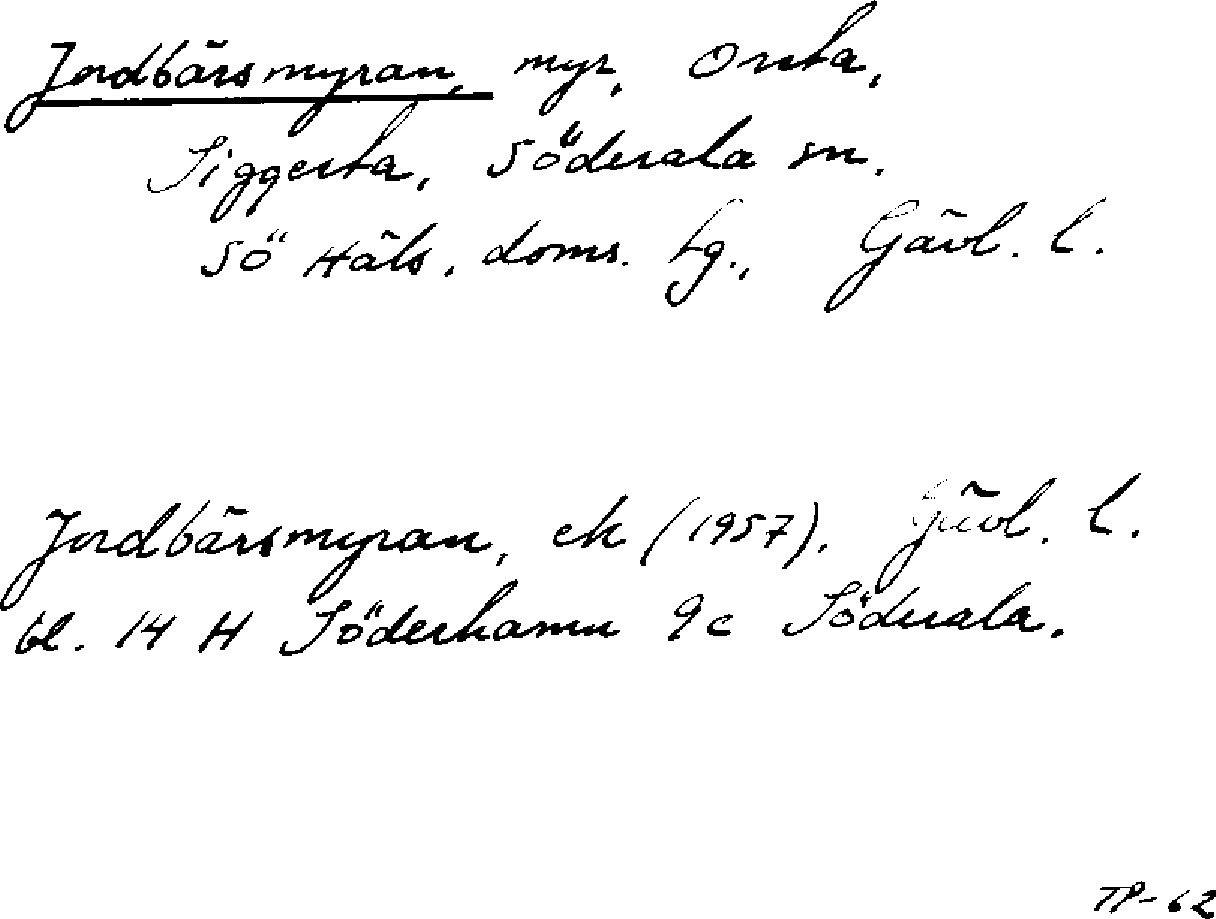 Jordbärsmyran, myr, Onsta,
Siggesta, Söderala sn.
Sö Häls. doms. lg., Gävl. l.
Jordbärsmyran, ek (1957). Gävl. l.
bl. 14 H Söderhamn 9c Söderala.
TP-62